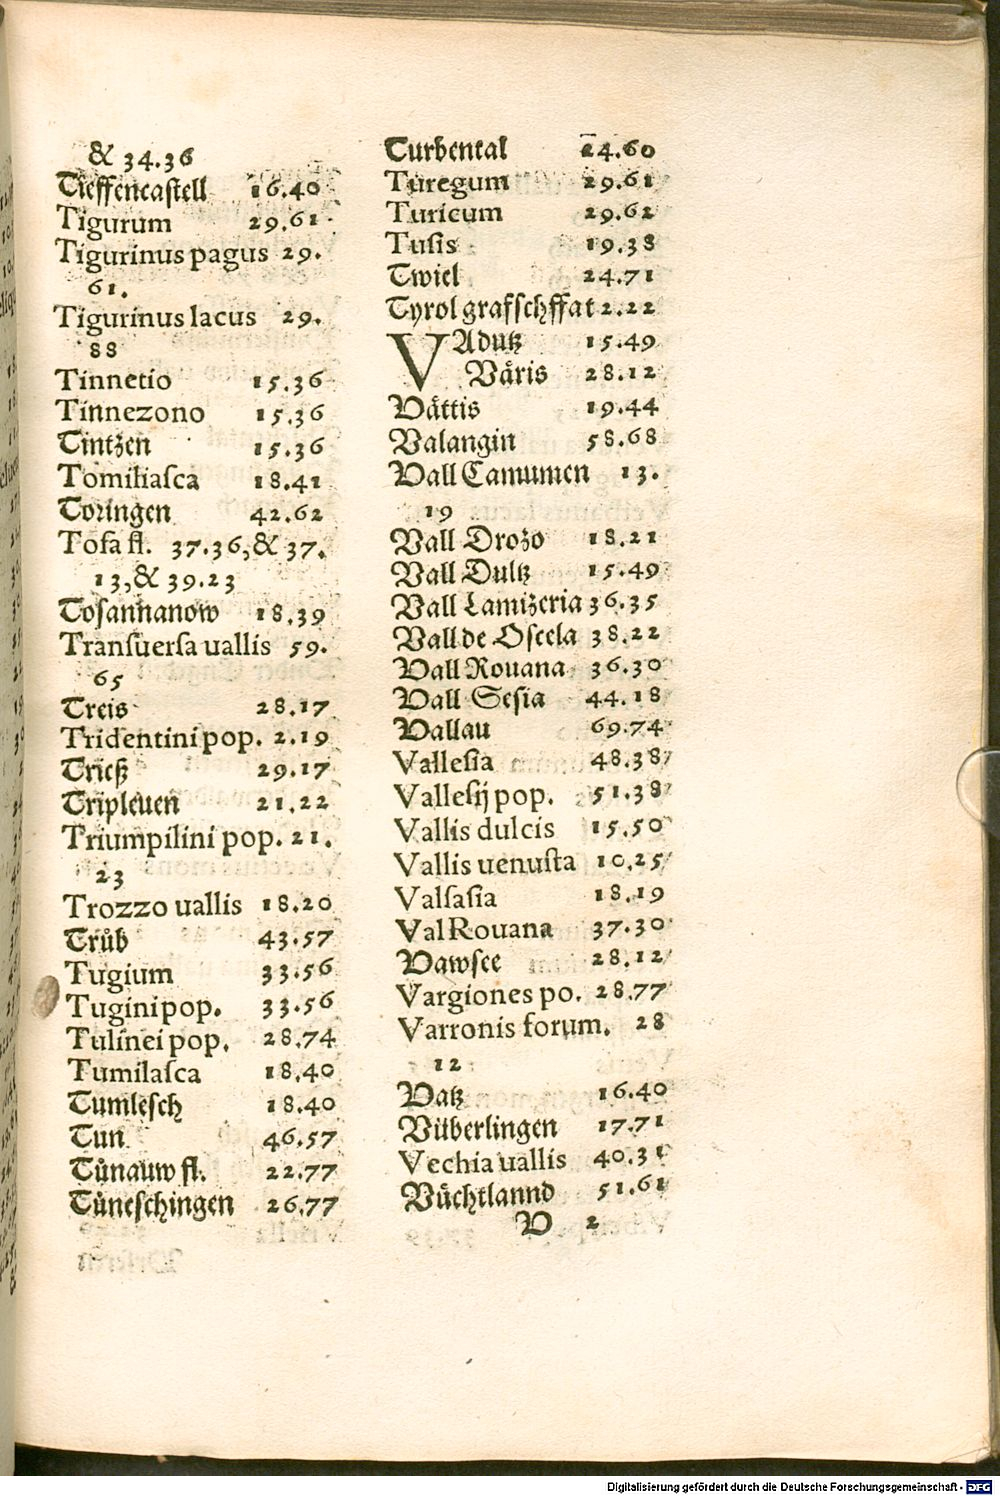 & 34.36
Tieffencastell 16.40
Tigurum 29.61
Tigurinus pagus 29.
61.
Tigurinus lacus 29.
88
Tinnetio 15.36
Tinnezono 15.36
Tintzen 15.36
Tomiliasca 18.41
Toringen 42.62
Tosa fl. 37.36,& 37.
13,& 39.23
Tosannanow 18.39
Transuersa uallis 59.
65
Treis 28.17
Tridentini pop. 2.19
Trieß 29.17
Tripleuen 21.22
Triumpilini pop. 21.
23
Trozzo uallis 18.20
Trůb 43.57
Tugium 33.56
Tugini pop. 33.56
Tulinei pop. 28.74
Tumilasca 18.40
Tumlesch 18.40
Tun 46.57
Tůnauw fl. 22.77
Tůneschingen 26.77
Turbental 24.60
Turegum 29.61
Turicum 29.62
Tusis 19.38
Twiel 24.71
Tyrol grafschffat 2.22
VAdutz 15.49
Väris 28.12
Vättis 19.44
Valangin 58.68
Vall Camumen 13.
19
Vall Drozo 18.21
Vall Dultz 15.49
Vall Lamizeria 36.35
Vall de Oscela 38.22
Vall Rouana 36.30
Vall Sesia 44.18
Vallau 69.74
Vallesia 48.38
Vallesij pop. 51.38
Vallis dulcis 15.50
Vallis uenusta 10.25
Valsasia 18.19
Val Rouana 37.30
Vawsee 28.12
Vargiones po. 28.77
Varronis forum. 28
12
Vatz 16.40
Vüberlingen 17.71
Vechia uallis 40.31
Vüchtlannd 51.61
V 2
Digitalisierung gefördert durch die Deutsche Forschungsgemeinschaft - DFG